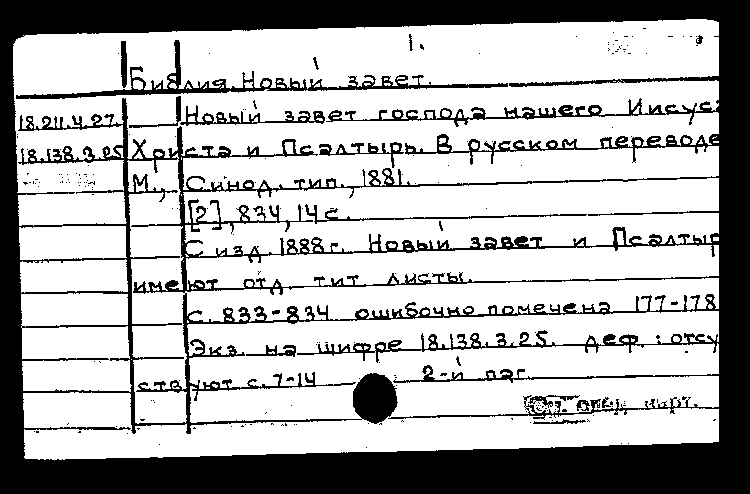 1.
Библия. Новый завет.
18.211.4.27. Новый завет господа нашего Иисуса
18.138.3.25 Христа и Псалтырь. В русском переводе
М., Синод. тип., 1881.
[2], 834, 14 с.
С изд. 1888 г. Новый завет и Псалтыр
имеют отд. тит листы.
с. 833-834 ошибочно помечена 177-178
Экз. на шифре 18.138.3.25. деф.: отсу
ствуют с. 7-14 2-й паг.
карт.